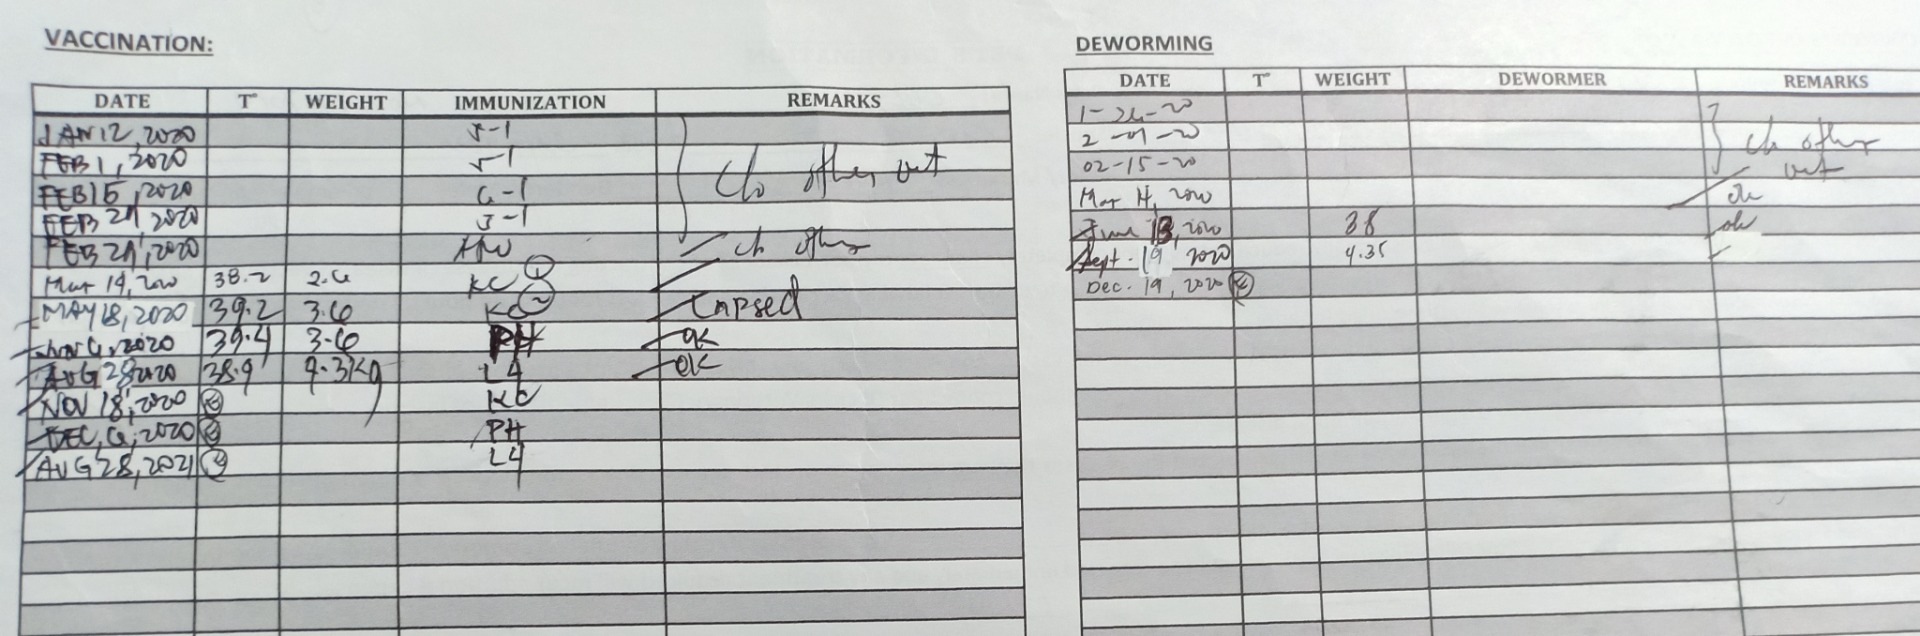 VACCINATION:
DATE T° WEIGHT IMMUNIZATION REMARKS
JAN 12, 2020 5-1
FEB 1, 2020 5-1
c/o other vet
FEB 15, 2020 6-1
FEB 29, 2020 5-1
FEB 29, 2020 HW c/o other
Mar 14, 2020 38.2 2.6 KC 1
MAY 18, 2020 39.2 3.6 KC 2 Lapsed
6, 2020 39.4 3.6 PH OK
AUG 28 2020 38.9 4.3kg L4 OK
NOV 18, 2020 KC
DEC, 6, 2020 PH
AUG 28, 2021 L4
DEWORMING
DATE T° WEIGHT DEWORMER REMARKS
1-24-20
2-01-20 c/o other
02-15-20 vet
Mar 14, 2020 ok
June 13, 2020 38 ok
Sept. 19 2020 4.35
Dec. 19, 2020